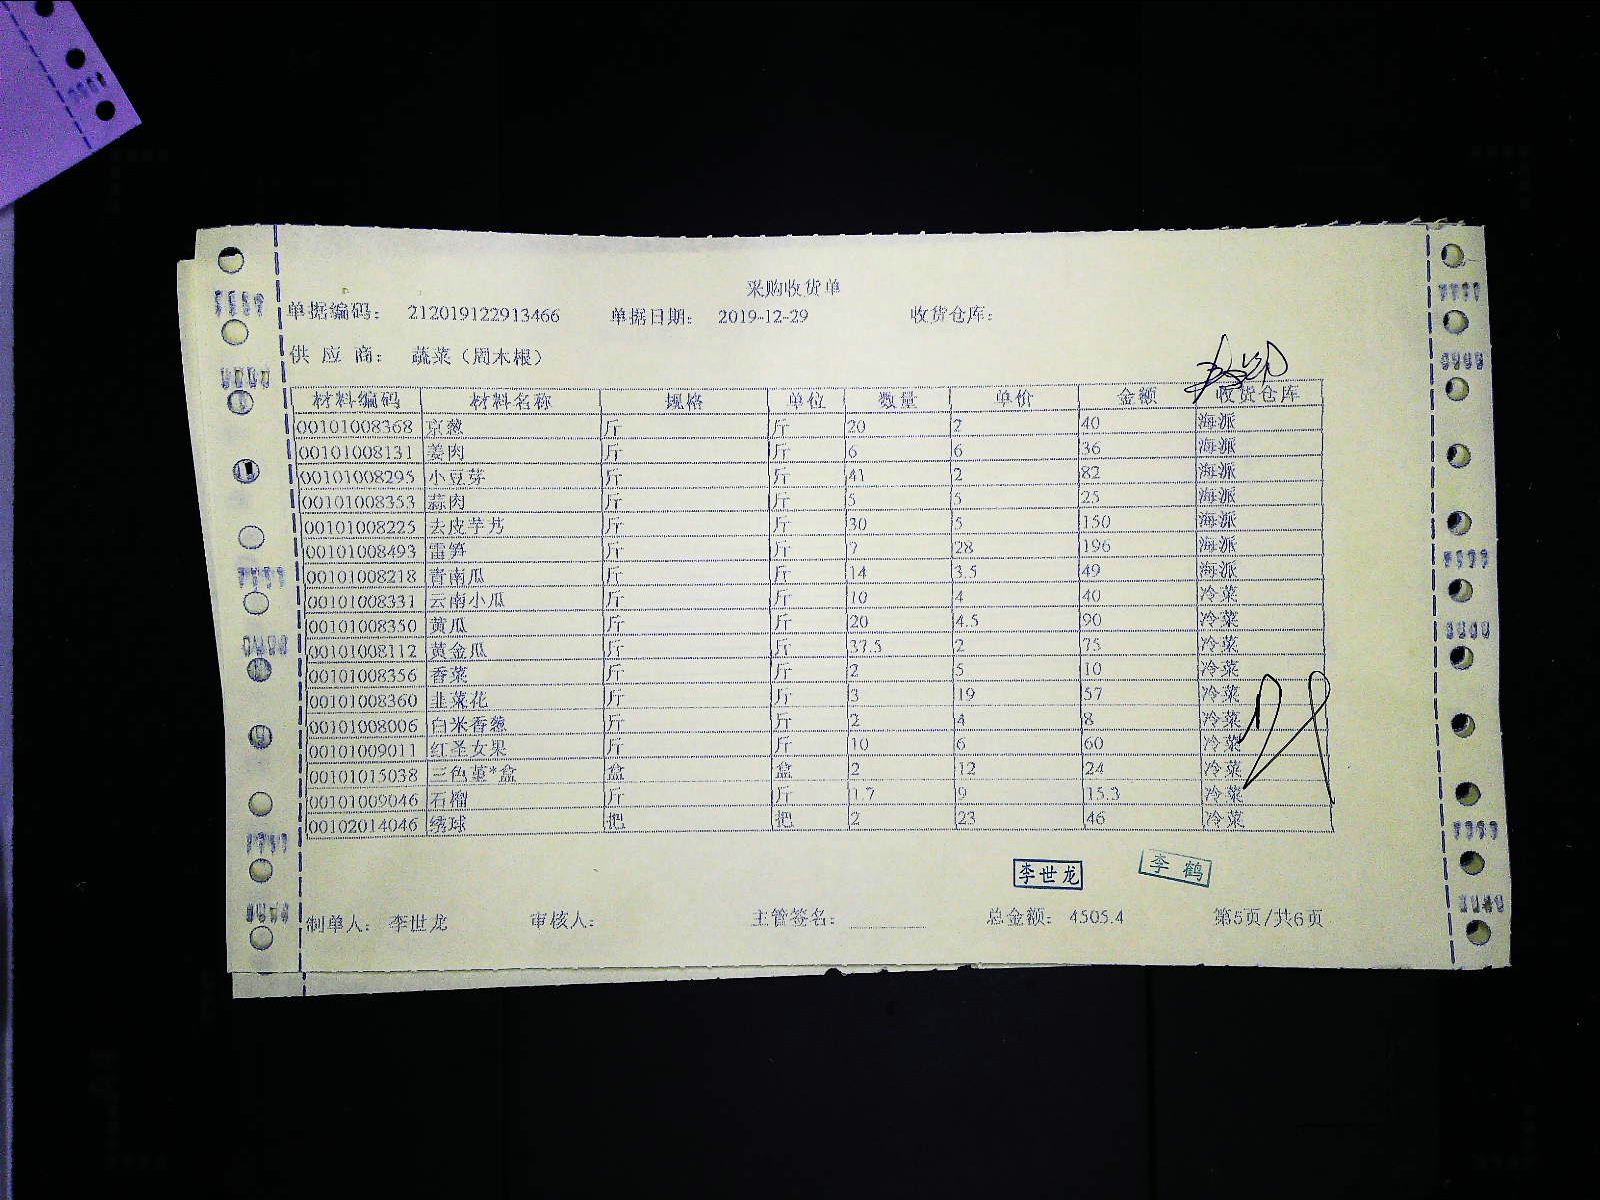 采购收货单
单据编码： 212019122913466 单据日期： 2019-12-29 收货仓库：
供 应 商： 蔬菜（周木根）
材料编码 材料名称 规格 单位 数量 单价 金额 收货仓库
00101008368 京葱 斤 斤 20 2 40 海派
00101008131 姜肉 斤 斤 6 6 36 海派
00101008295 小豆芽 斤 斤 41 2 82 海派
00101008353 蒜肉 斤 斤 5 5 25 海派
00101008225 去皮芋艿 斤 斤 30 5 150 海派
00101008493 雷笋 斤 斤 7 28 196 海派
00101008218 青南瓜 斤 斤 14 3.5 49 海派
00101008331 云南小瓜 斤 斤 10 4 40 冷菜
00101008350 黄瓜 斤 斤 20 4.5 90 冷菜
00101008112 黄金瓜 斤 斤 37.5 2 75 冷菜
00101008356 香菜 斤 斤 2 5 10 冷菜
00101008360 韭菜花 斤 斤 3 19 57 冷菜
00101008006 白米香葱 斤 斤 2 4 8 冷菜
00101009011 红圣女果 斤 斤 10 6 60 冷菜
00101015038 三色堇*盒 盒 盒 2 12 24 冷菜
00101009046 石榴 斤 斤 1.7 9 15.3 冷菜
00102014046 绣球 把 把 2 23 46 冷菜
李世龙 李鹤
制单人： 李世龙 审核人： 主管签名： 总金额： 4505.4 第5页/共6页